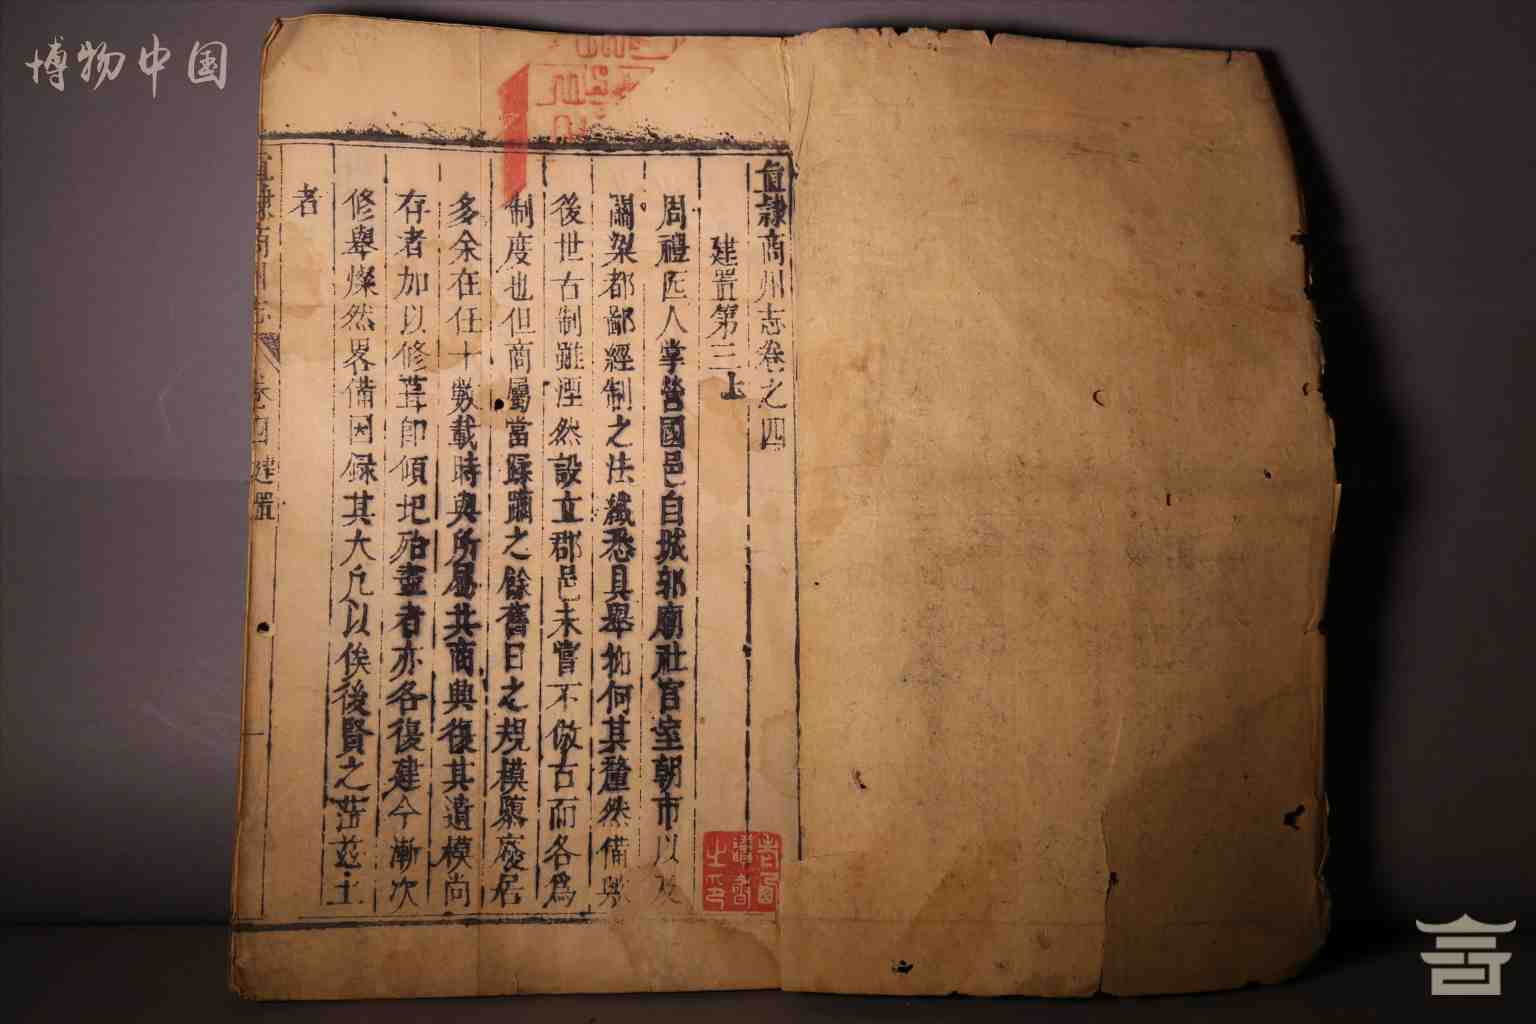 博物中国
直隷商州志卷之四
建置第三上
周禮匠人掌營國邑自城郭廟社宮室朝市以及
關梁都鄙經制之法纖悉具舉抑何其釐然備與
後世古制雖湮然設立郡邑未嘗不倣古而各爲
制度也但商屬當蹂躪之餘舊日之規模隳廢居
多余在任十數載時與所屬共商興復其遺模尚
存者加以修葺卽傾圯殆盡者亦各復建今漸次
修舉燦然畧備因録其大凡以俟後賢之茬茲土
者
直隷商州志 卷四 建置 一